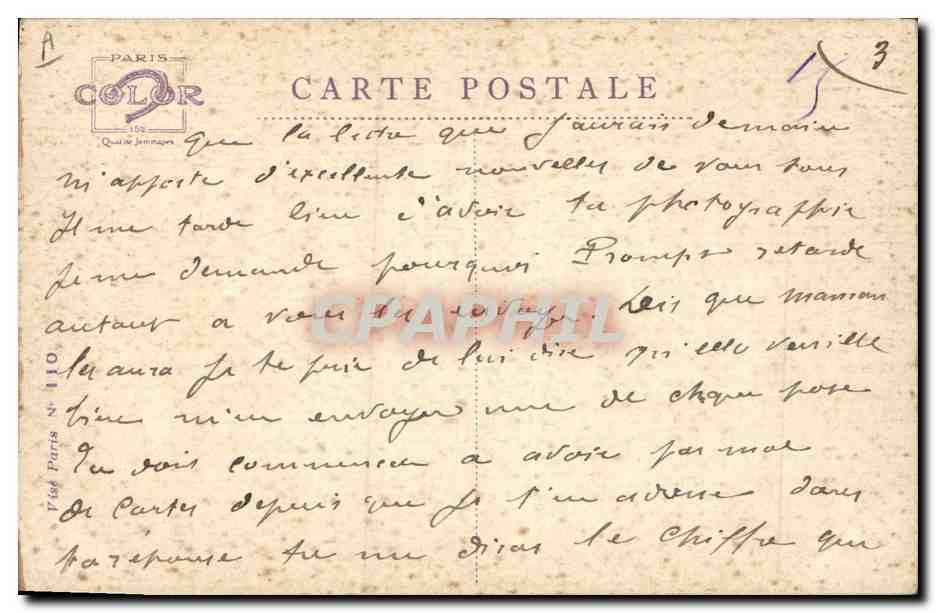 A
3
PARIS
COLOR
152
Quai de Jemmapes
CARTE POSTALE
que la lettre que j'aurais demain
m'apporte d'excellente nouvelles de vous tous
Il me tarde bien d'avoir ta photographie
Je me demande pourquoi retarde
autant a vous les envoyer. Dis que maman
les aura je te prie de lui dire qu'elle veuille
bien m'en envoyer une de chaque pose
Tu dois commencer a avoir pas mal
de cartes depuis que je t'en adresse dans
ta réponse tu me diras le chiffre que
Visé Paris N° 110
CPAPHIL